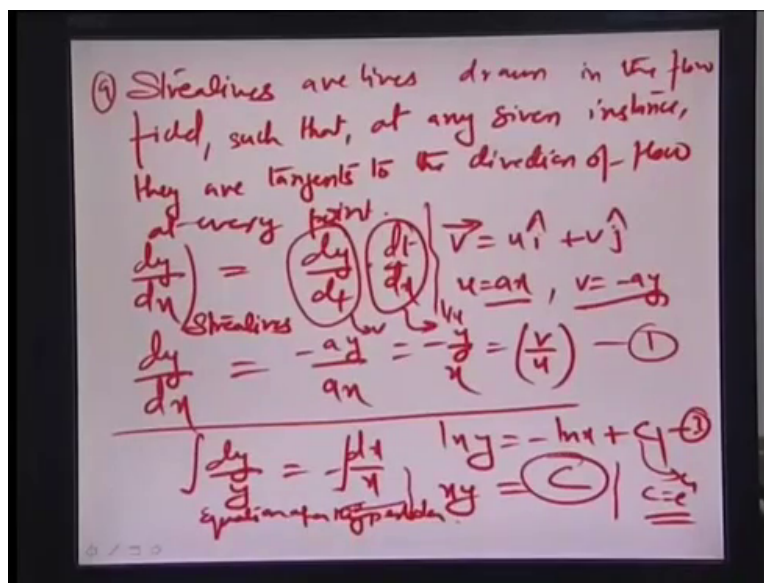 (a) Strealines are lines drawn in the flow
field, such that, at any given instance,
they are tangents to the direction of flow
at every point.
dy/dx) Strealines = dy/dt · dt/dx | V⃗ = u î + v ĵ
v 1/u u = ax, v = -ay
dy/dx = -ay/ax = -y/x = (v/u) — ①
∫ dy/y = -∫ dx/x | ln y = -ln x + c₁ — ③
xy = C | c = e^c₁
Equation of a hyperbola.